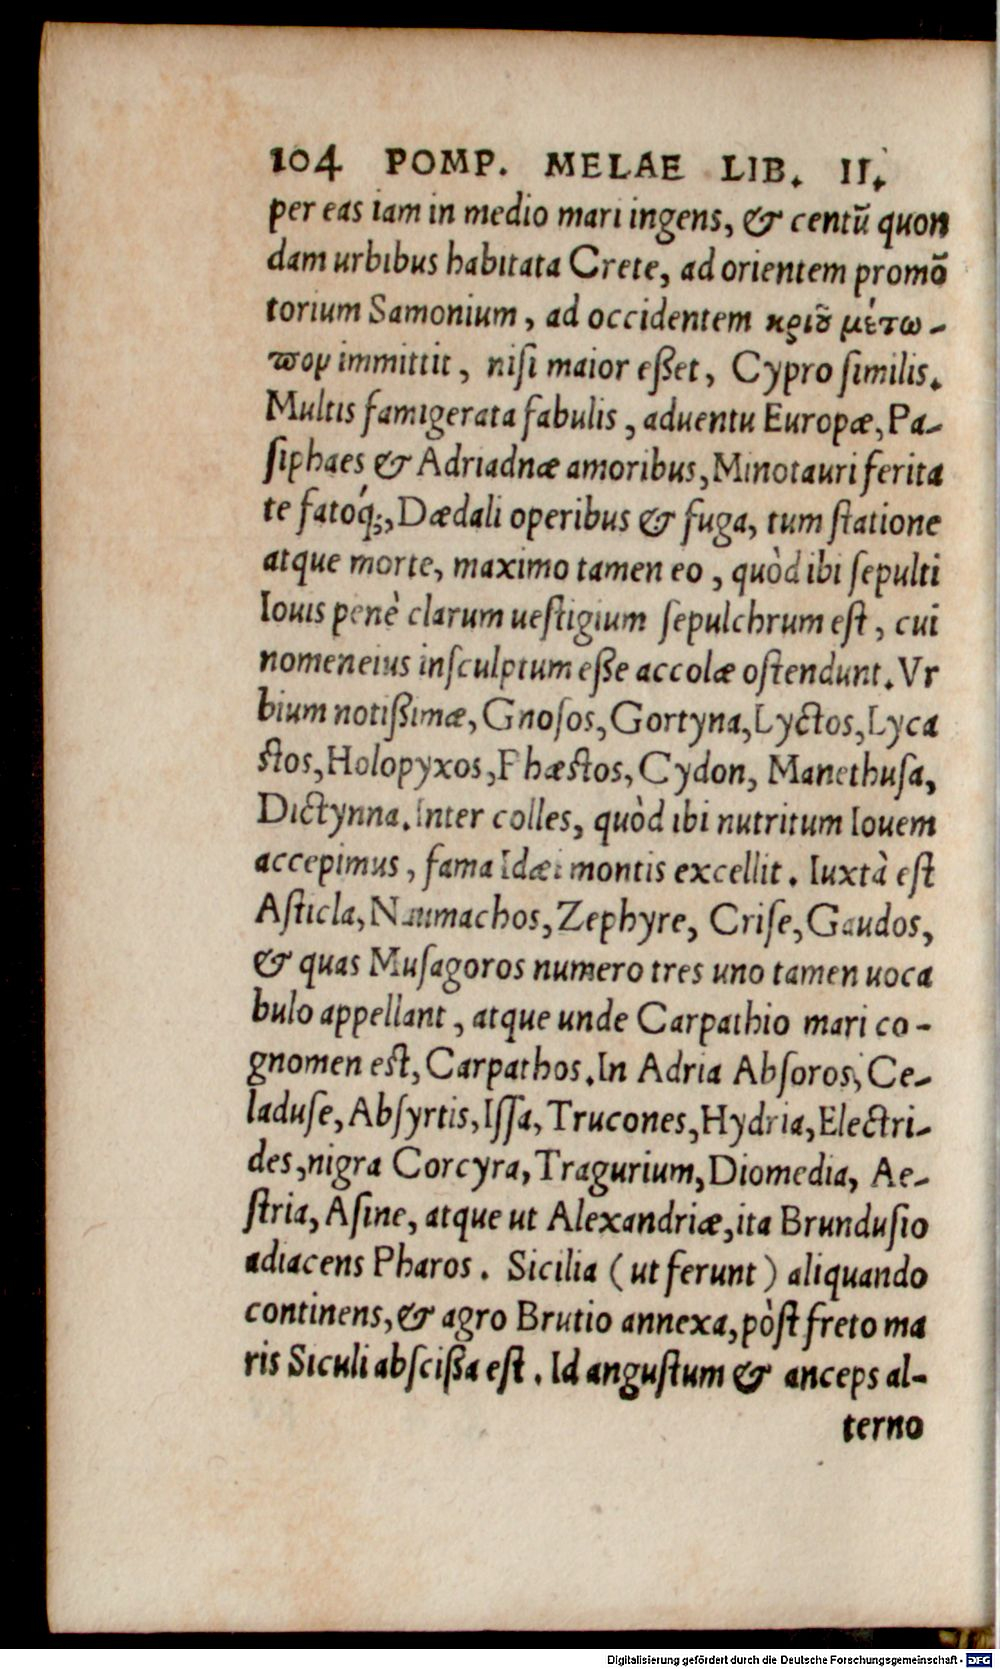 104 POMP. MELAE LIB. II.
per eas iam in medio mari ingens, & centũ quon
dam urbibus habitata Crete, ad orientem promõ
torium Samonium, ad occidentem κριȣ͂ μέτω-
πον immittit, nisi maior eßet, Cypro similis.
Multis famigerata fabulis, aduentu Europæ, Pa-
siphaes & Adriadnæ amoribus, Minotauri ferita
te fatóq́;, Dædali operibus & fuga, tum statione
atque morte, maximo tamen eo, quòd ibi sepulti
Iouis penè clarum uestigium sepulchrum est, cui
nomen eius insculptum eße accolæ ostendunt. Vr
bium notißimæ, Gnosos, Gortyna, Lyctos, Lyca
stos, Holopyxos, Phæstos, Cydon, Manethusa,
Dictynna. Inter colles, quòd ibi nutritum Iouem
accepimus, fama Idæi montis excellit. Iuxtà est
Asticla, Naumachos, Zephyre, Crise, Gaudos,
& quas Musagoros numero tres uno tamen uoca
bulo appellant, atque unde Carpathio mari co-
gnomen est, Carpathos. In Adria Absoros, Ce-
laduse, Absyrtis, Issa, Trucones, Hydria, Electri-
des, nigra Corcyra, Tragurium, Diomedia, Ae-
stria, Asine, atque ut Alexandriæ, ita Brundusio
adiacens Pharos. Sicilia (ut ferunt) aliquando
continens, & agro Brutio annexa, pòst freto ma
ris Siculi abscißa est. Id angustum & anceps al-
terno
Digitalisierung gefördert durch die Deutsche Forschungsgemeinschaft - DFG